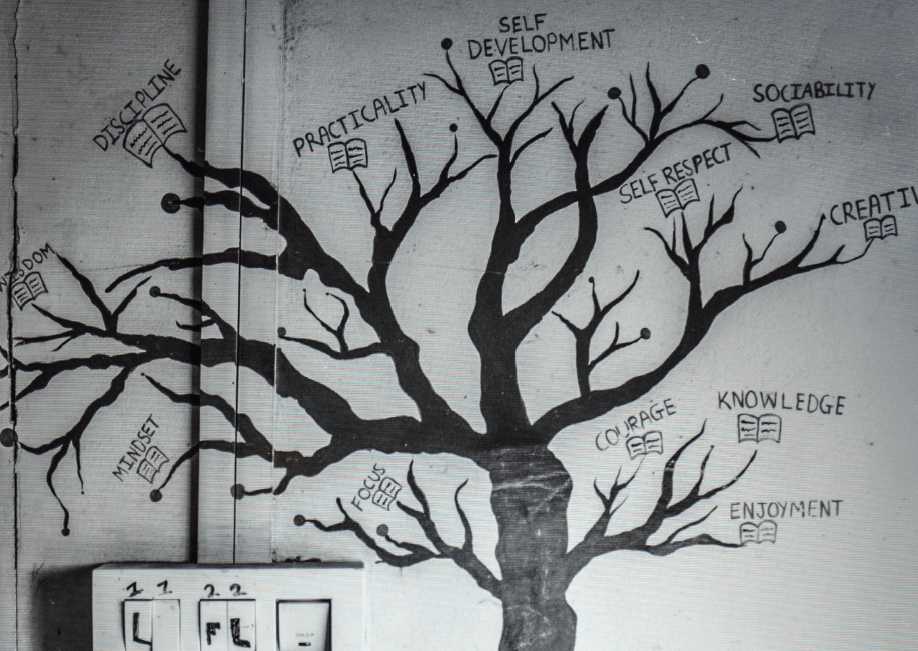 SELF
DEVELOPMENT
DISCIPLINE
PRACTICALITY
SOCIABILITY
SELF RESPECT
CREATIV
WISDOM
KNOWLEDGE
COURAGE
MINDSET
FOCUS
ENJOYMENT
1 1 2 2
L FL